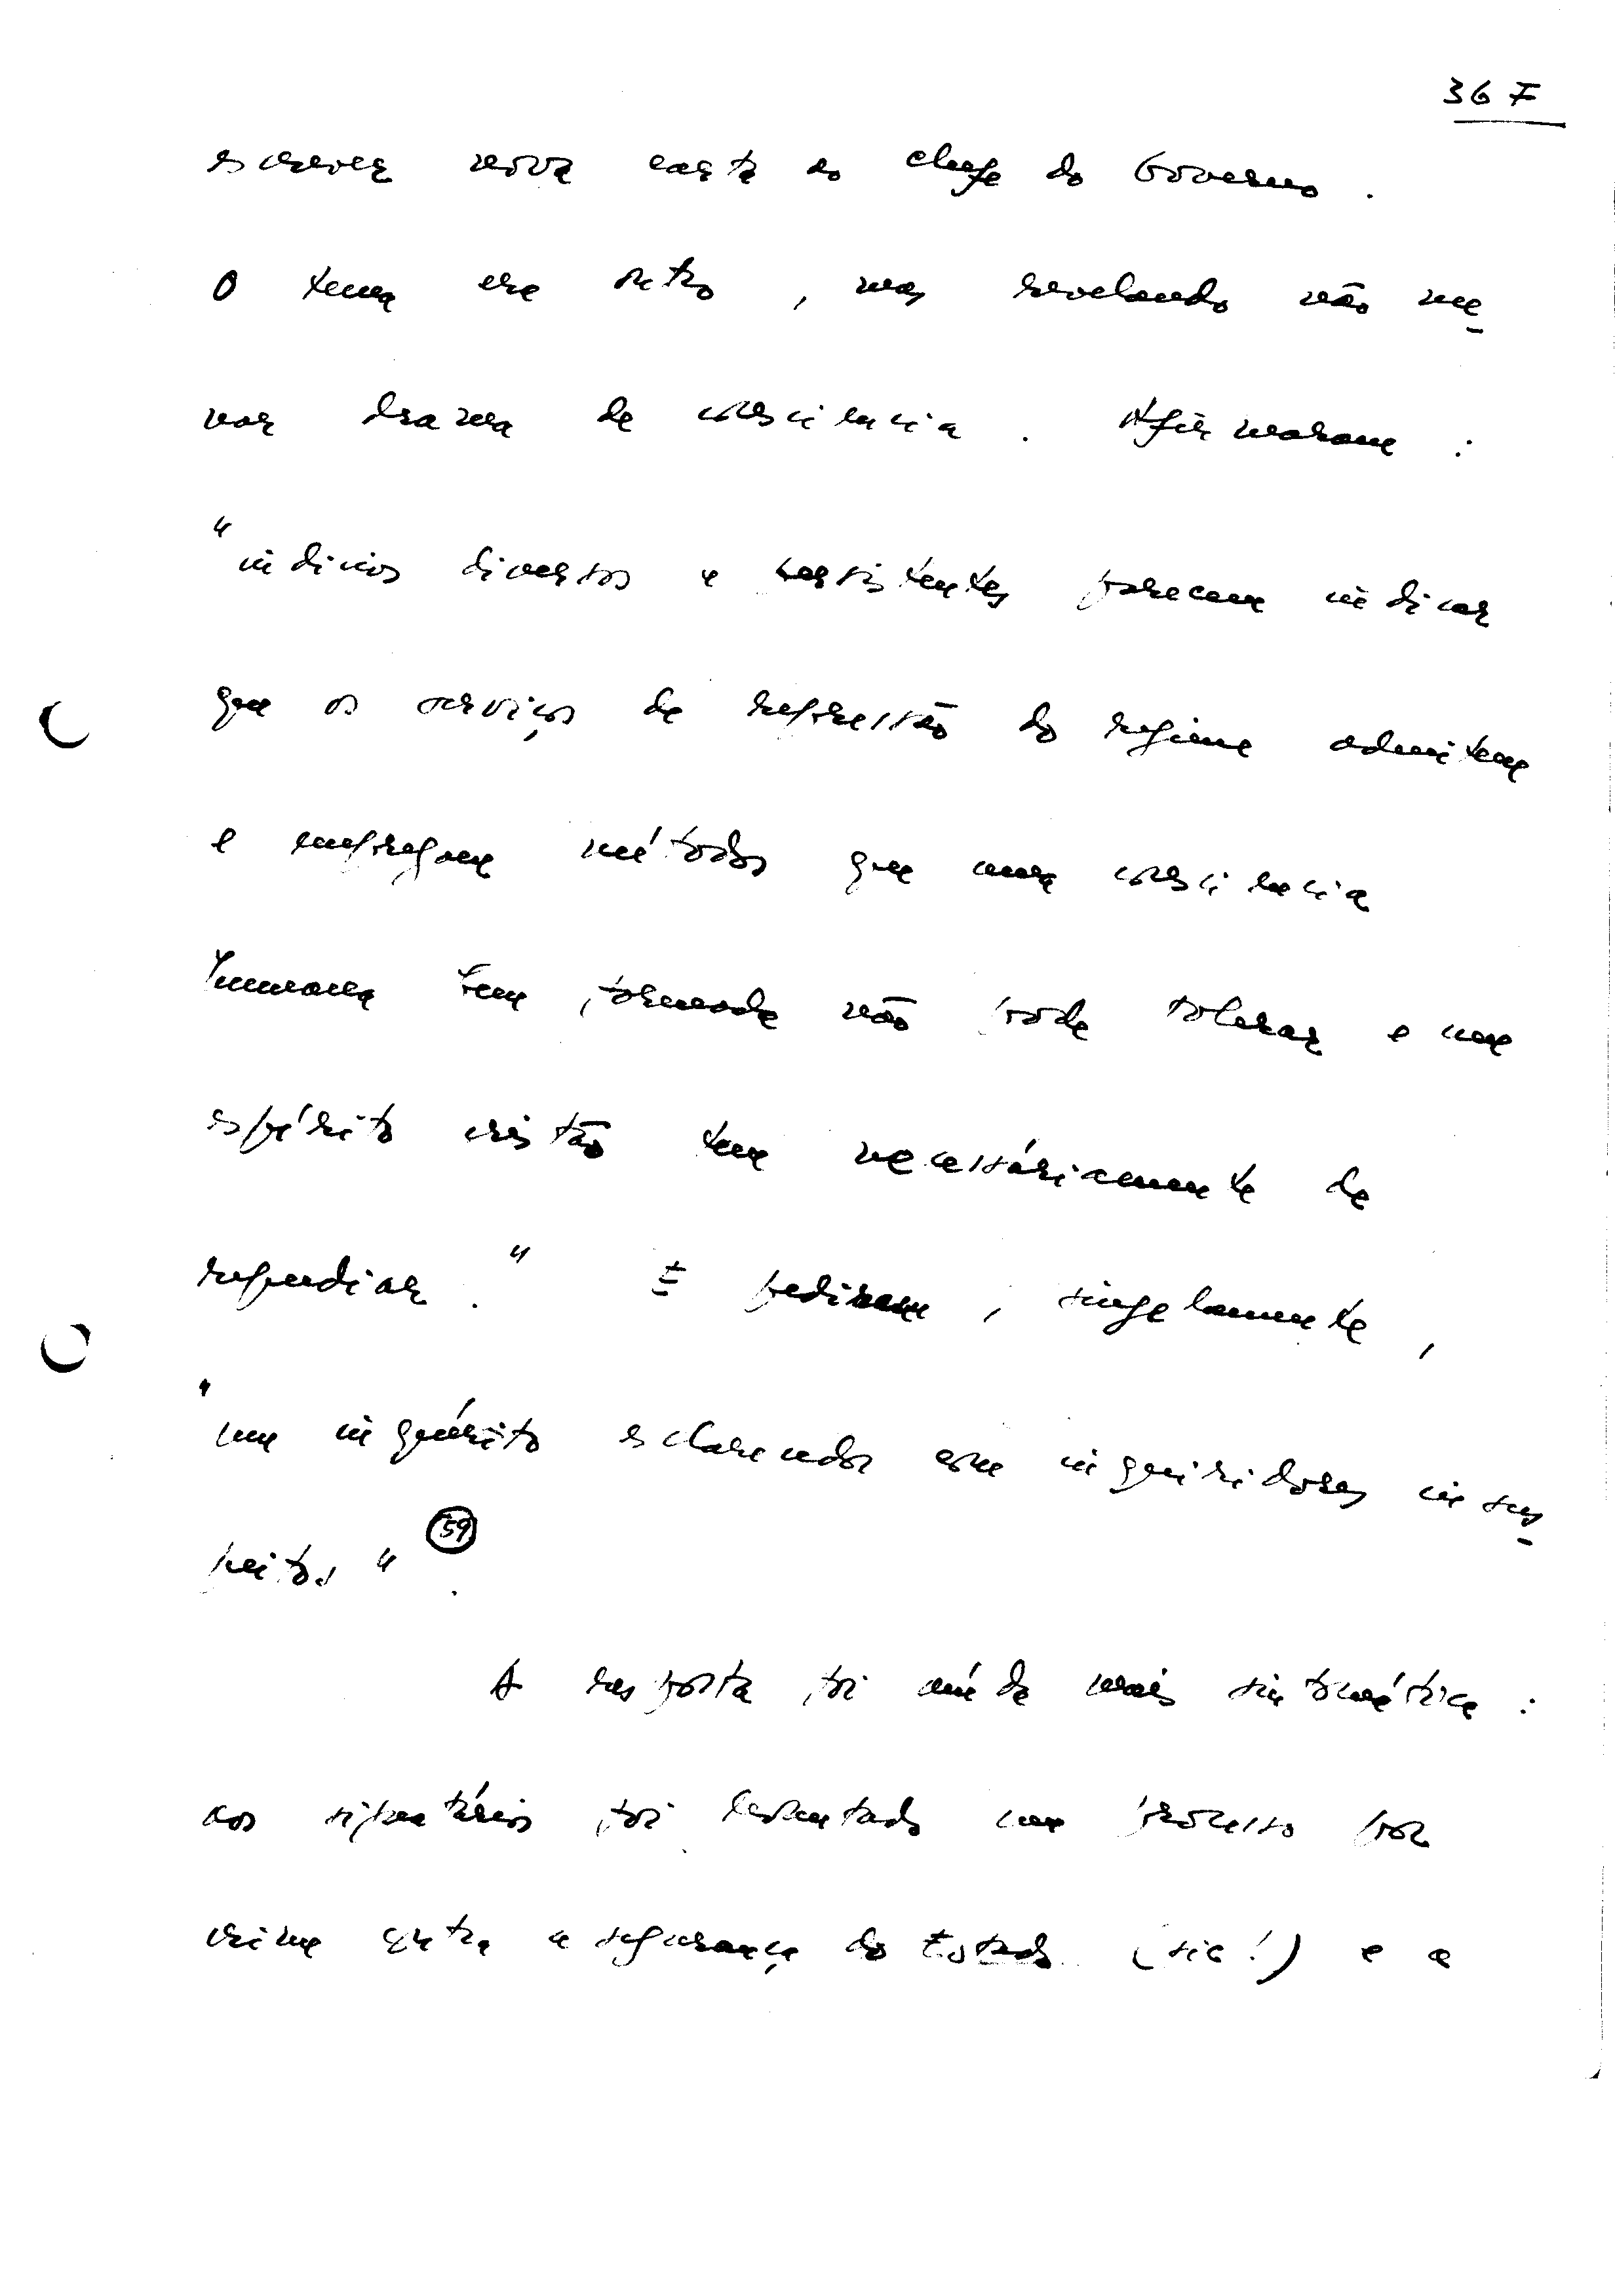 36 F
escrever nova carta ao chefe do Governo.
O tema era outro, mas revelando não me-
nor drama de consciência. Afirmavam:
"indícios diversos e persistentes parecem indicar
que os serviços de repressão do regime admitem
e empregam métodos que uma consciência
humana bem formada não pode tolerar e um
espírito cristão tem necessáriamente de
repudiar." E pediram, singelamente,
"um inquérito esclarecedor com inquiridores insus-
peitos" (59).
A resposta foi ainda mais sintomática:
aos signatários foi levantado um processo por
crime contra a segurança do Estado (sic!) e a